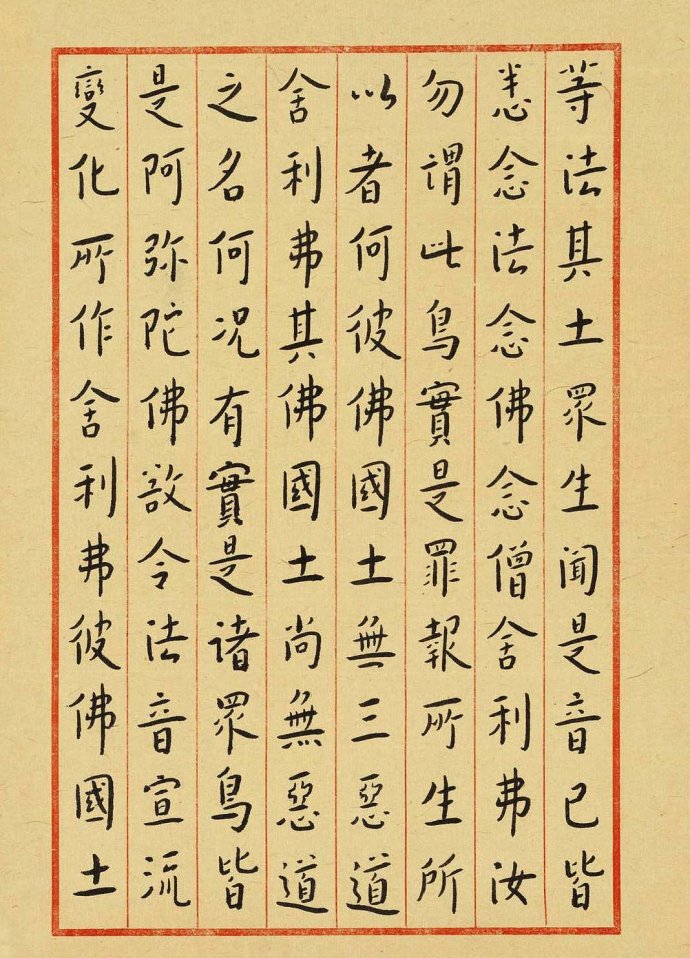 等法其土眾生聞是音已皆
悉念法念佛念僧舍利弗汝
勿謂此鳥實是罪報所生所
以者何彼佛國土無三惡道
舍利弗其佛國土尚無惡道
之名何况有實是諸眾鳥皆
是阿弥陀佛欲令法音宣流
變化所作舍利弗彼佛國土